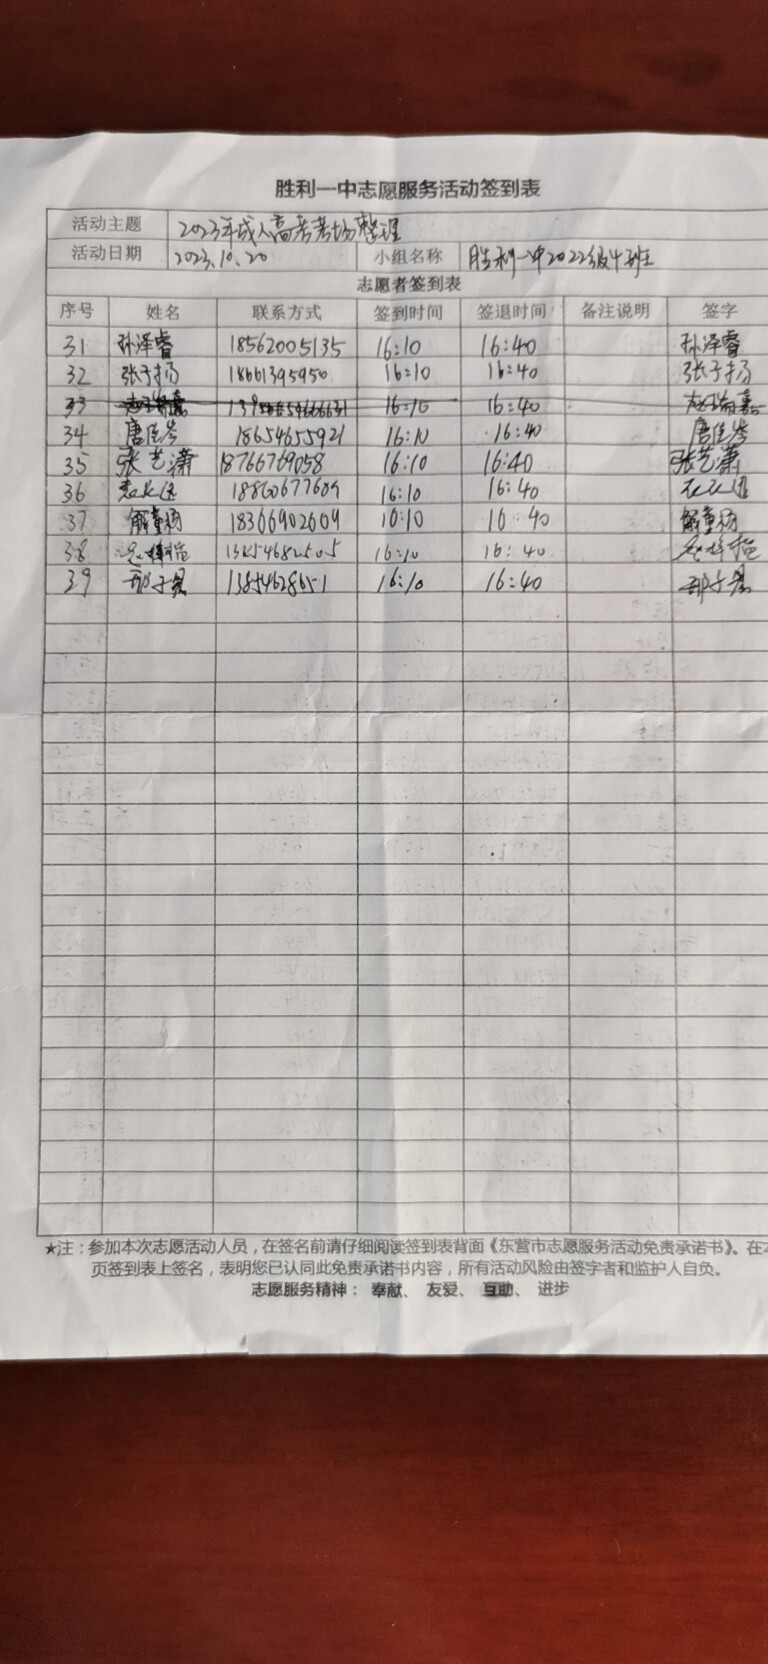 胜利一中志愿服务活动签到表
活动主题 2023年成人高考考场整理
活动日期 2023.10.20 小组名称 胜利一中2022级4班
志愿者签到表
序号 姓名 联系方式 签到时间 签退时间 备注说明 签字
31 孙泽睿 18562005135 16:10 16:40 孙泽睿
32 张子扬 18661395950 16:10 16:40 张子扬
33 16:10 16:40
34 唐佳岑 18654655921 16:10 16:40 唐佳岑
35 张艺潇 18766769058 16:10 16:40 张艺潇
36 16:10 16:40
37 解童杨 18366902609 16:10 16:40 解童杨
38 16:10 16:40
39 13854628651 16:10 16:40
★注：参加本次志愿活动人员，在签名前请仔细阅读签到表背面《东营市志愿服务活动免责承诺书》。在
页签到表上签名，表明您已认同此免责承诺书内容，所有活动风险由签字者和监护人自负。
志愿服务精神： 奉献、 友爱、 互助、 进步